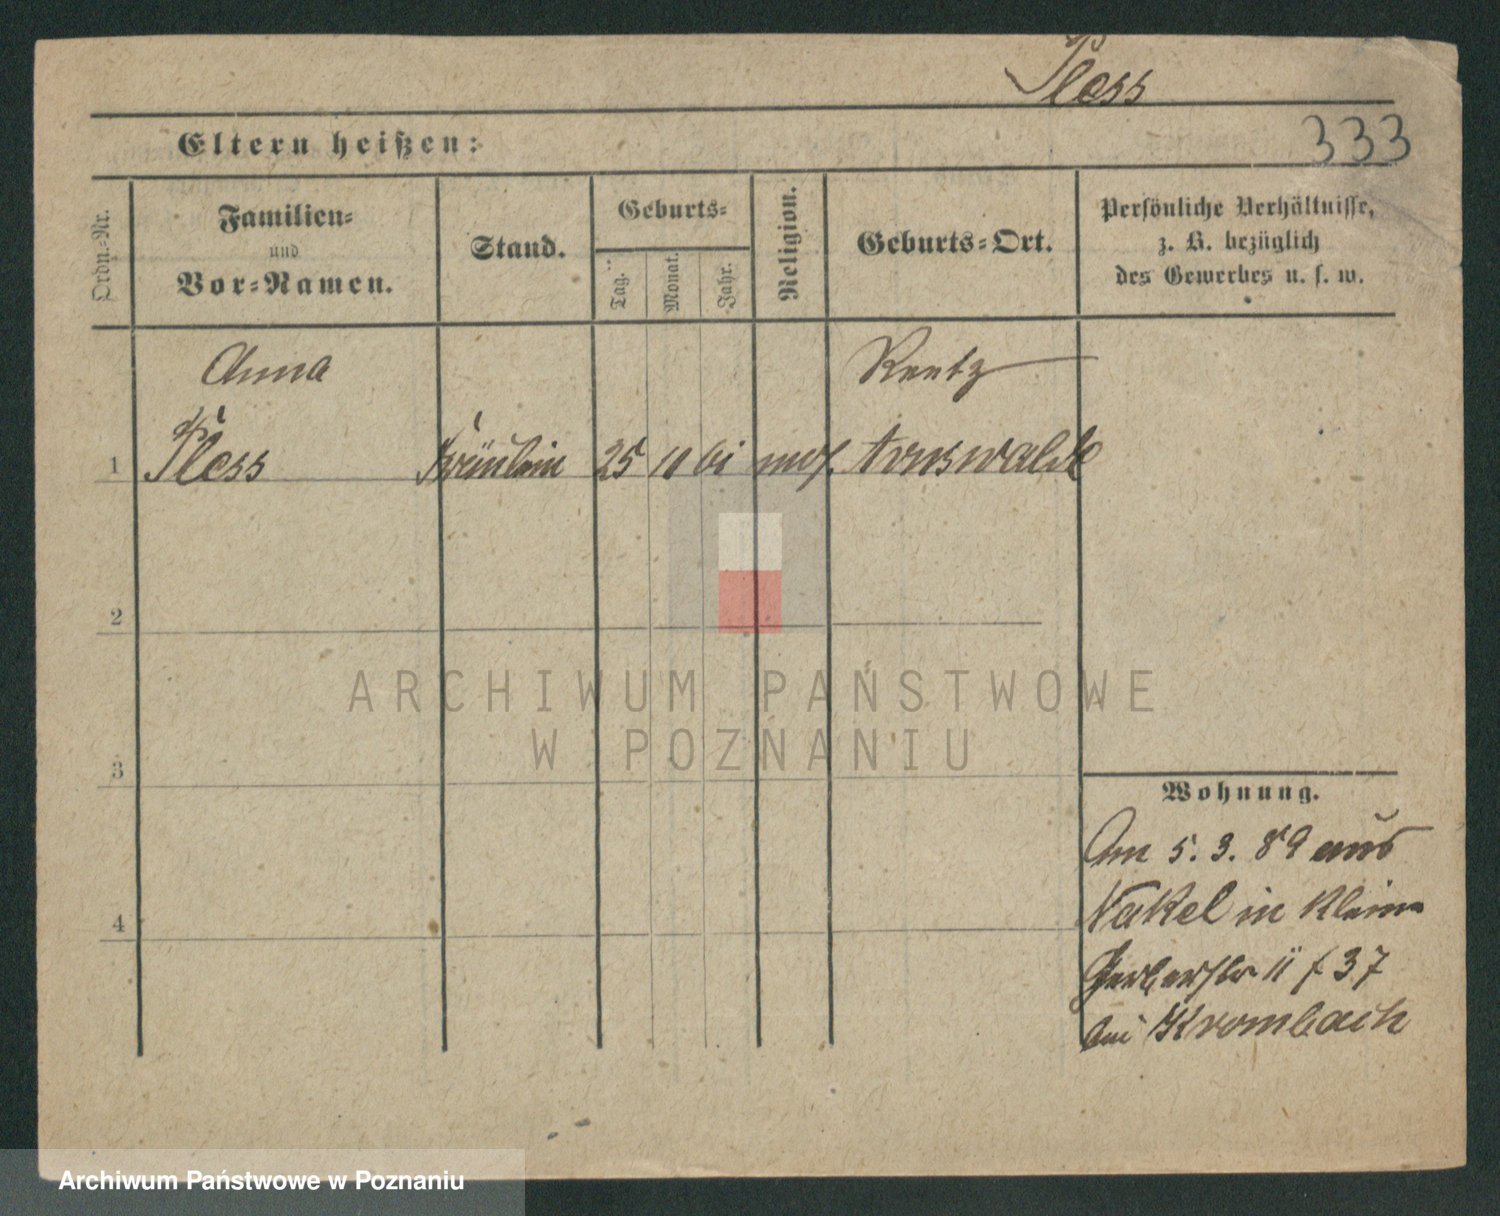 Pless
333
Eltern heißen:
Ordn.-Nr.
Familien-
und
Vor-Namen.
Stand.
Geburts-
Tag.
Monat.
Jahr.
Religion.
Geburts-Ort.
Persönliche Verhältnisse,
z. B. bezüglich
des Gewerbes u. s. w.
Anna
Reetz
1 Pless Fräulein 25 10 mos. Arnswalde
2
3
4
ARCHIWUM PAŃSTWOWE
W POZNANIU
Wohnung.
Am 5. 3. 89 aus
Nakel in Klein
Gerberstr 11 f 37
bei Krombach
Archiwum Państwowe w Poznaniu